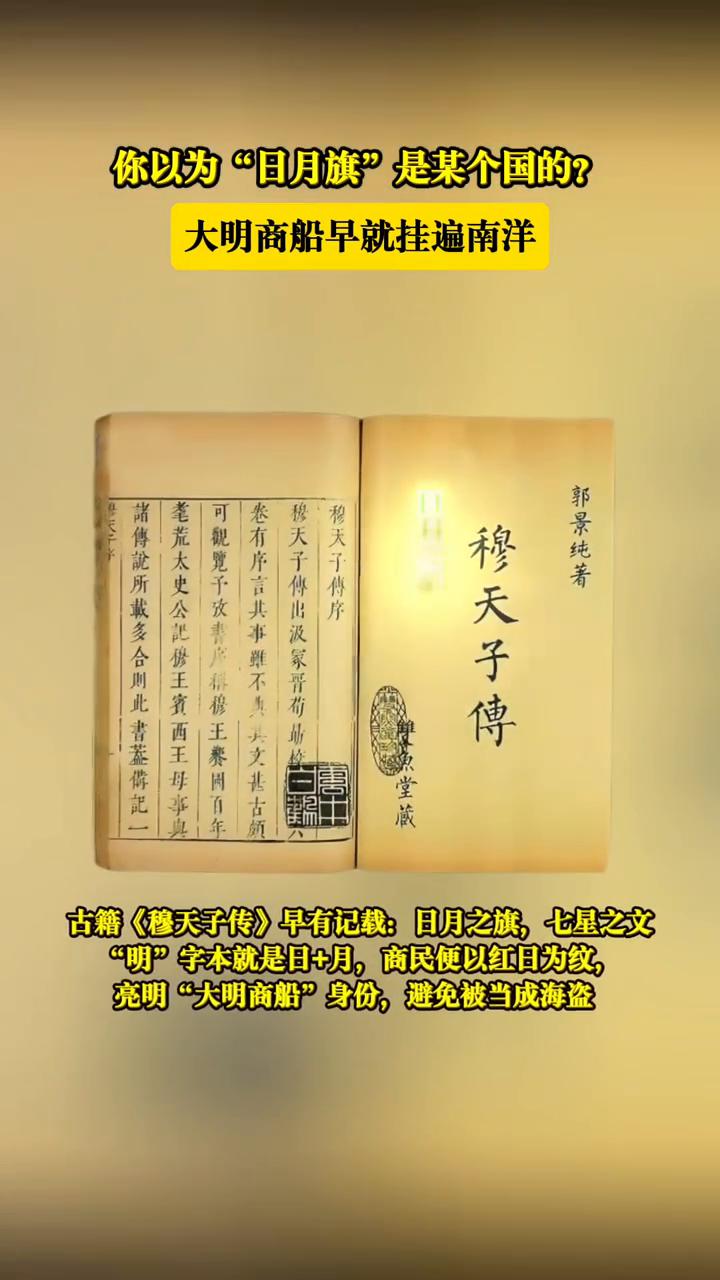 你以为“日月旗”是某个国的?
大明商船早就挂遍南洋
郭景纯著
穆天子傳
雙魚堂藏
穆天子傳序
穆天子傳出汲冢晉荀勗校六
卷有序言其事雖不典其文甚古頗
可觀覽予攷書序稱穆王饗國百年
耄荒太史公記穆王賓西王母事與
諸傳說所載多合則此書蓋備記一
古籍《穆天子传》早有记载：日月之旗，七星之文
“明”字本就是日+月，商民便以红日为纹，
亮明“大明商船”身份，避免被当成海盗